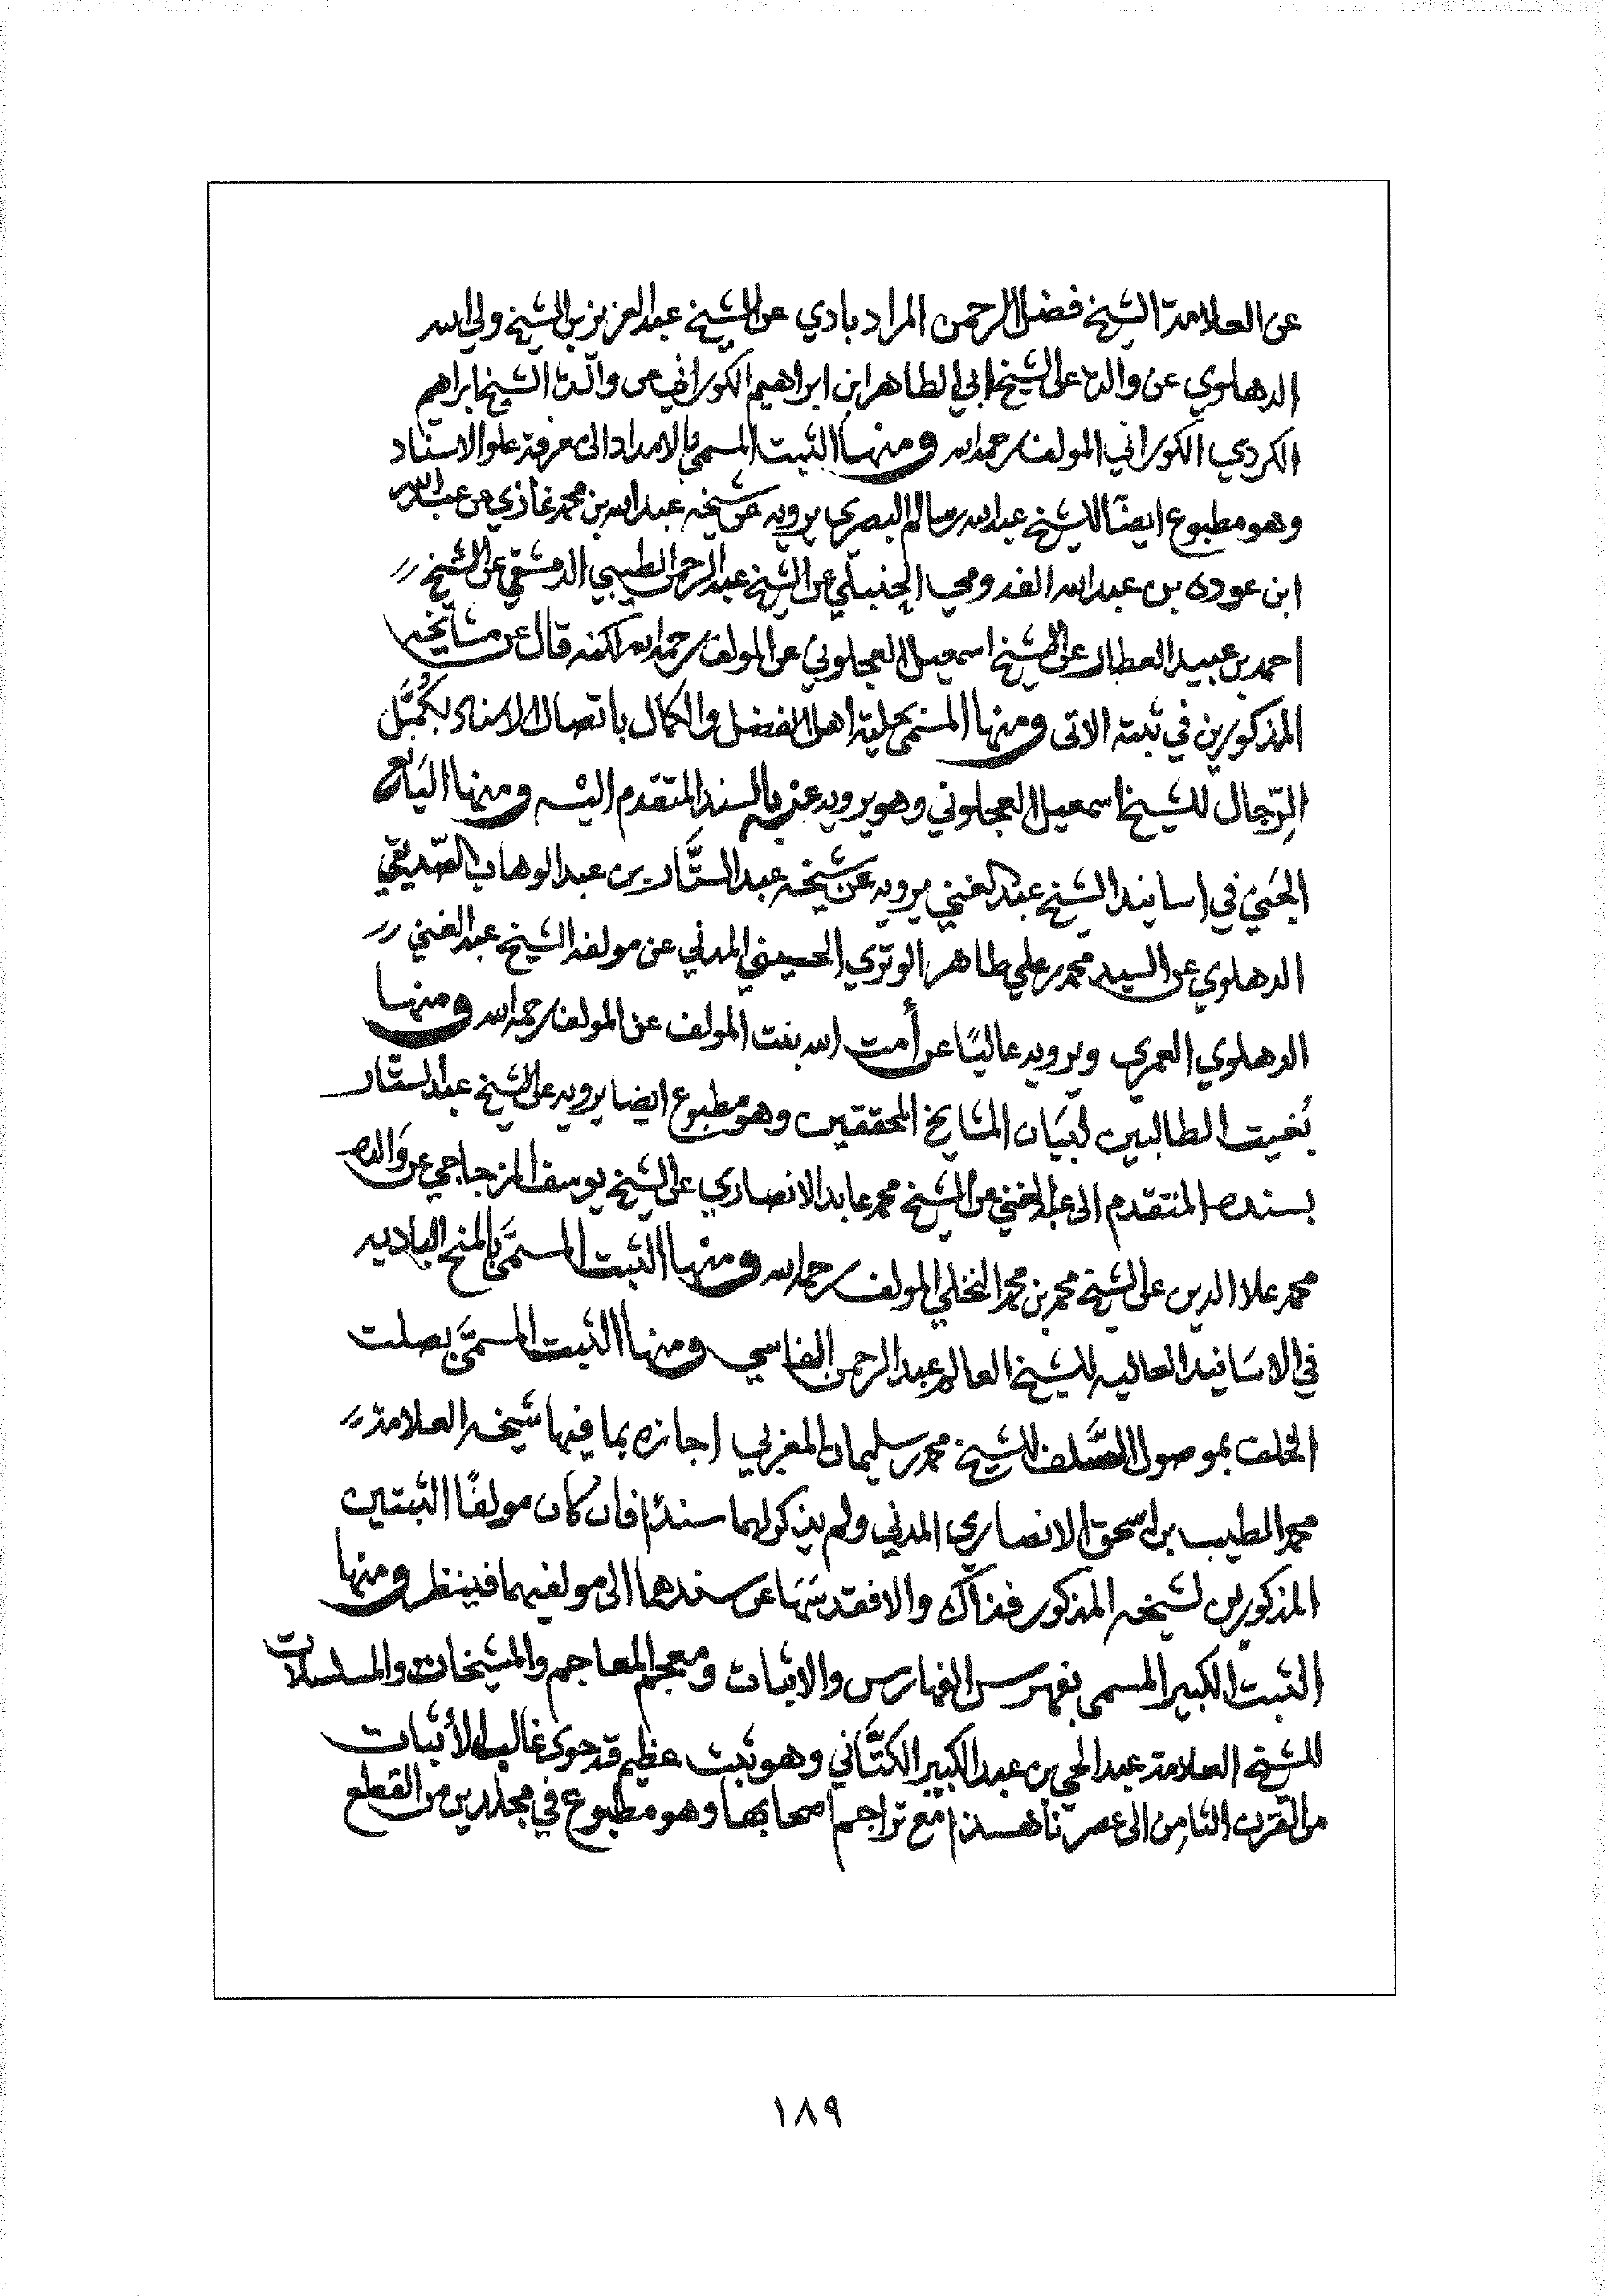 عن العلامة الشيخ فضل الرحمن المرادبادي عن الشيخ عبد العزيز بن الشيخ ولي الله
الدهلوي عن والده عن الشيخ ابي الطاهر ابن ابراهيم الكوراني عن والده الشيخ ابراهيم
الكردي الكوراني المولف رحمه الله ومنها الثبت المسمى بالامداد الى معرفة علو الاسناد
وهو مطبوع ايضًا للشيخ عبد الله سالم البصري يرويه عن شيخه عبد الله بن محمد غازي عن عبد الله
ابن عوده بن عبد الله القدومي الحنبلي عن الشيخ عبد الرحمن الطيبي الدمشقي عن الشيخ
احمد بن عبيد العطار عن الشيخ اسمعيل العجلوني عن المولف رحمه الله لكنه قال عن مشايخه
المذكورين في ثبته الاتى ومنها المسمى بحلية اهل الفضل والكمال باتصال الاسناد بكُمَّل
الرِّجال للشيخ اسمعيل العجلوني وهو يرويه عنه بالسند المتقدم اليه ومنها اليَانع
الجَنيّ في اسانيد الشيخ عبد الغني يرويه عن شيخه عبد الستَّار بن عبد الوهاب الصّديقي
الدهلوي عن السيد محمد علي طاهر الوتري الحسيني المدني عن مولفه الشيخ عبد الغني
الدهلوي العمري ويرويه عاليًا عن أمت الله بنت المولف عن المولف رحمه الله ومنها
بُغيت الطالبين لبيَان المشايخ المحققين وهو مطبوع ايضا يرويه عن الشيخ عبد الستَّار
بسنده المتقدم الى عبد الغني عن الشيخ محمد عابد الانصاري عن الشيخ يوسف المزجاجي عن وَالده
محمد علا الدين عن الشيخ محمد بن محمد النخلي المولف رحمه الله ومنها الثبت المسمَّى بالمنح الباديه
في الاسَانيد العاليه للشيخ العالم عبد الرحمن الفاسي ومنها الثبت المسمَّى بصلت
الخلف بموصول السَّلف للشيخ محمد سليمان المغربي اجازه بما فيها شيخه العلامة
محمد الطيب بن اسحق الانصاري المدني ولم يذكر لهما سندًا فان كان مولفًا الثبتين
المذكورين لشيخه المذكور فذاك والا فقد سَهَا عن سندهما الى مولفيهما فينظر ومنها
الثبت الكبير المسمى بفهرس الفهارس والاثبات ومعجم المعاجم والمشيخات والمسلسلات
للشيخ العلامة عبد الحي بن عبد الكبير الكتَّاني وهو ثبت عظيم قد حوى غالب الأثبات
من القرن الثامن الى عصرنا هذا مع تراجم اصحابها وهو مطبوع في مجلدين من القطع
١٨٩